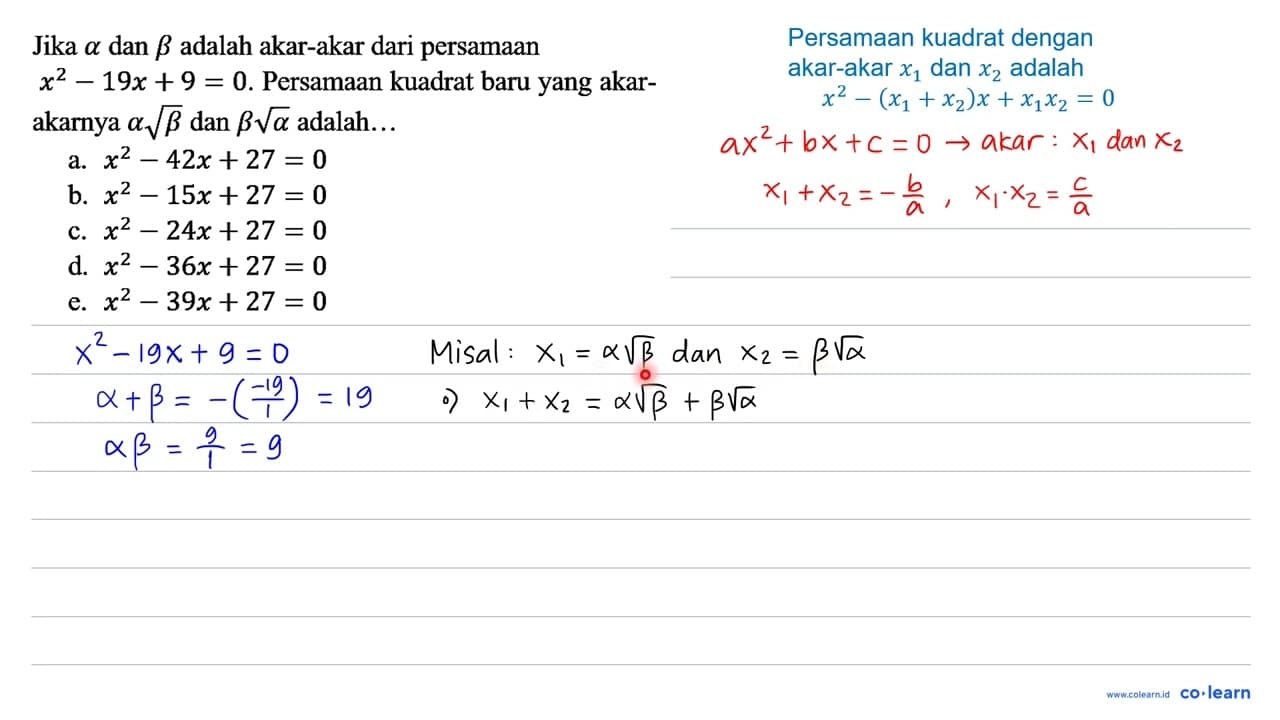 Jika α dan β adalah akar-akar dari persamaan
x² − 19x + 9 = 0. Persamaan kuadrat baru yang akar-
akarnya α√β dan β√α adalah…
a. x² − 42x + 27 = 0
b. x² − 15x + 27 = 0
c. x² − 24x + 27 = 0
d. x² − 36x + 27 = 0
e. x² − 39x + 27 = 0
Persamaan kuadrat dengan
akar-akar x₁ dan x₂ adalah
x² − (x₁ + x₂)x + x₁x₂ = 0
ax² + bx + c = 0 → akar : x₁ dan x₂
x₁ + x₂ = −b/a , x₁·x₂ = c/a
x² − 19x + 9 = 0
α + β = −(−19/1) = 19
αβ = 9/1 = 9
Misal : x₁ = α√β dan x₂ = β√α
•) x₁ + x₂ = α√β + β√α
www.colearn.id co·learn